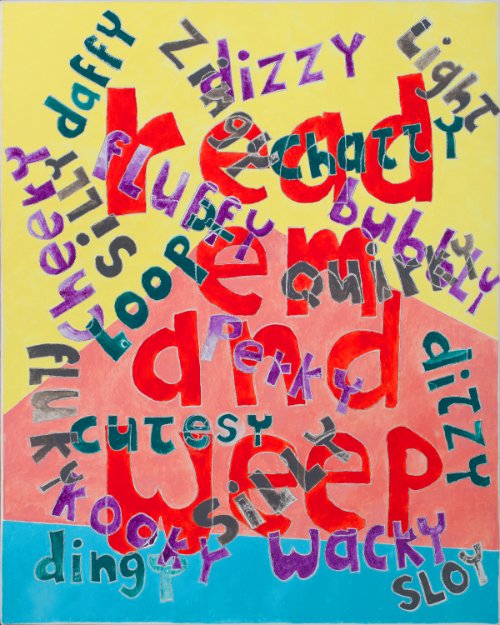 daffy
Zingy
dizzy
Light
read
chatty
cheeky
SiLLY
fLuffy
bubbLy
Loopy
em
quirky
and
perky
ditzy
fluky
cutesy
weep
SiLLY
kooky
wacky
dingy
SLOY